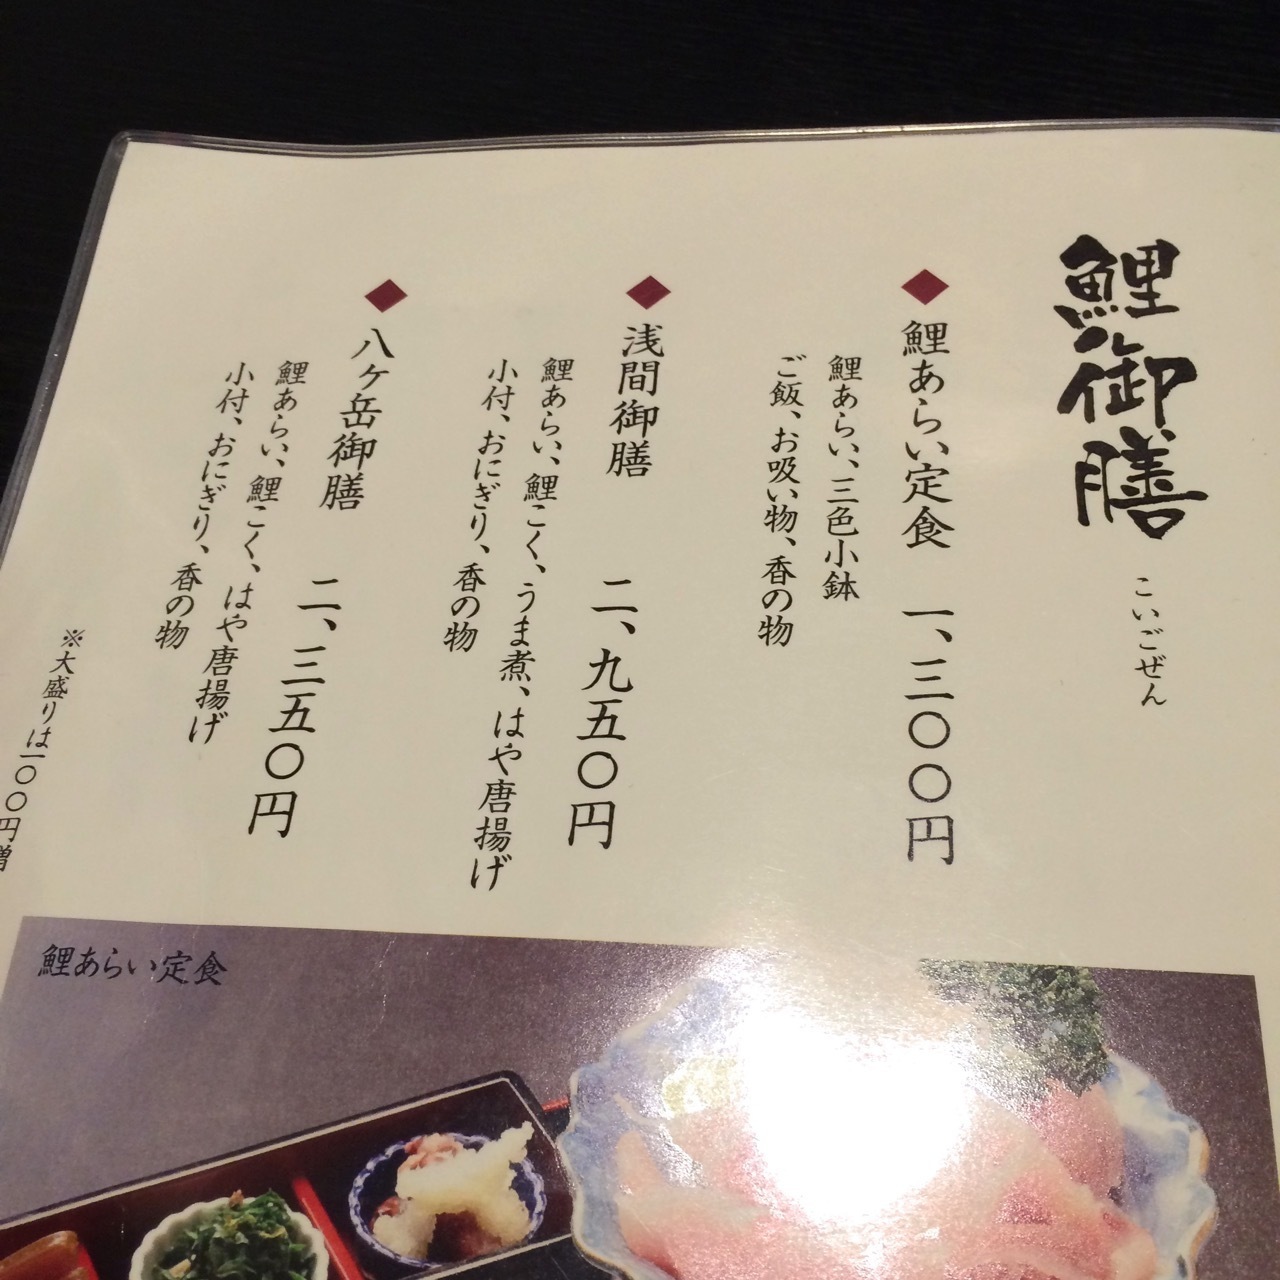 鯉御膳
こいごぜん
鯉あらい定食 一、三〇〇円
鯉あらい、三色小鉢
ご飯、お吸い物、香の物
浅間御膳 二、九五〇円
鯉あらい、鯉こく、うま煮、はや唐揚げ
小付、おにぎり、香の物
八ヶ岳御膳 二、三五〇円
鯉あらい、鯉こく、はや唐揚げ
小付、おにぎり、香の物
※大盛りは一〇〇円増
鯉あらい定食